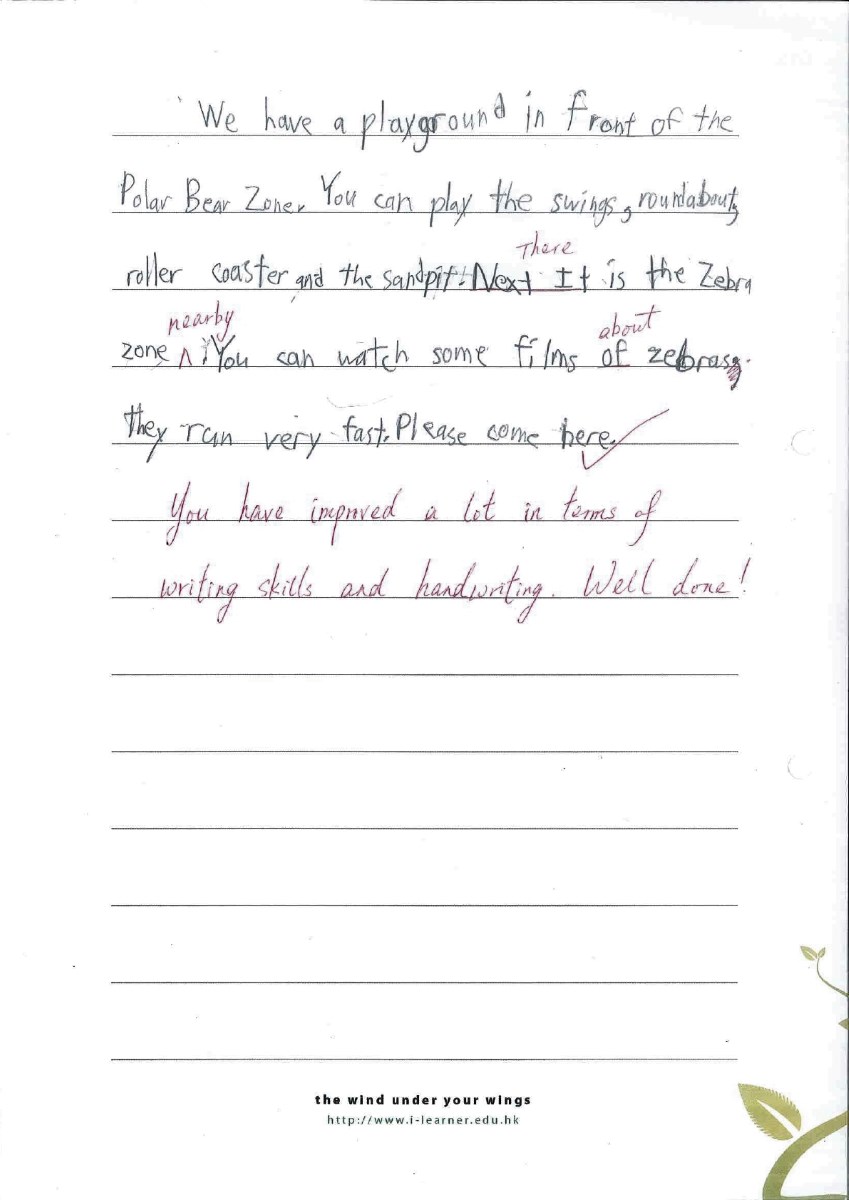 We have a playground in front of the
Polar Bear Zone. You can play the swings, roundabout,
There
roller coaster and the sandpit. Next It is the Zebra
nearby
about
zone ∧. You can watch some films of zebras.
they run very fast. Please come here.
You have improved a lot in terms of
writing skills and handwriting. Well done!
the wind under your wings
http://www.i-learner.edu.hk